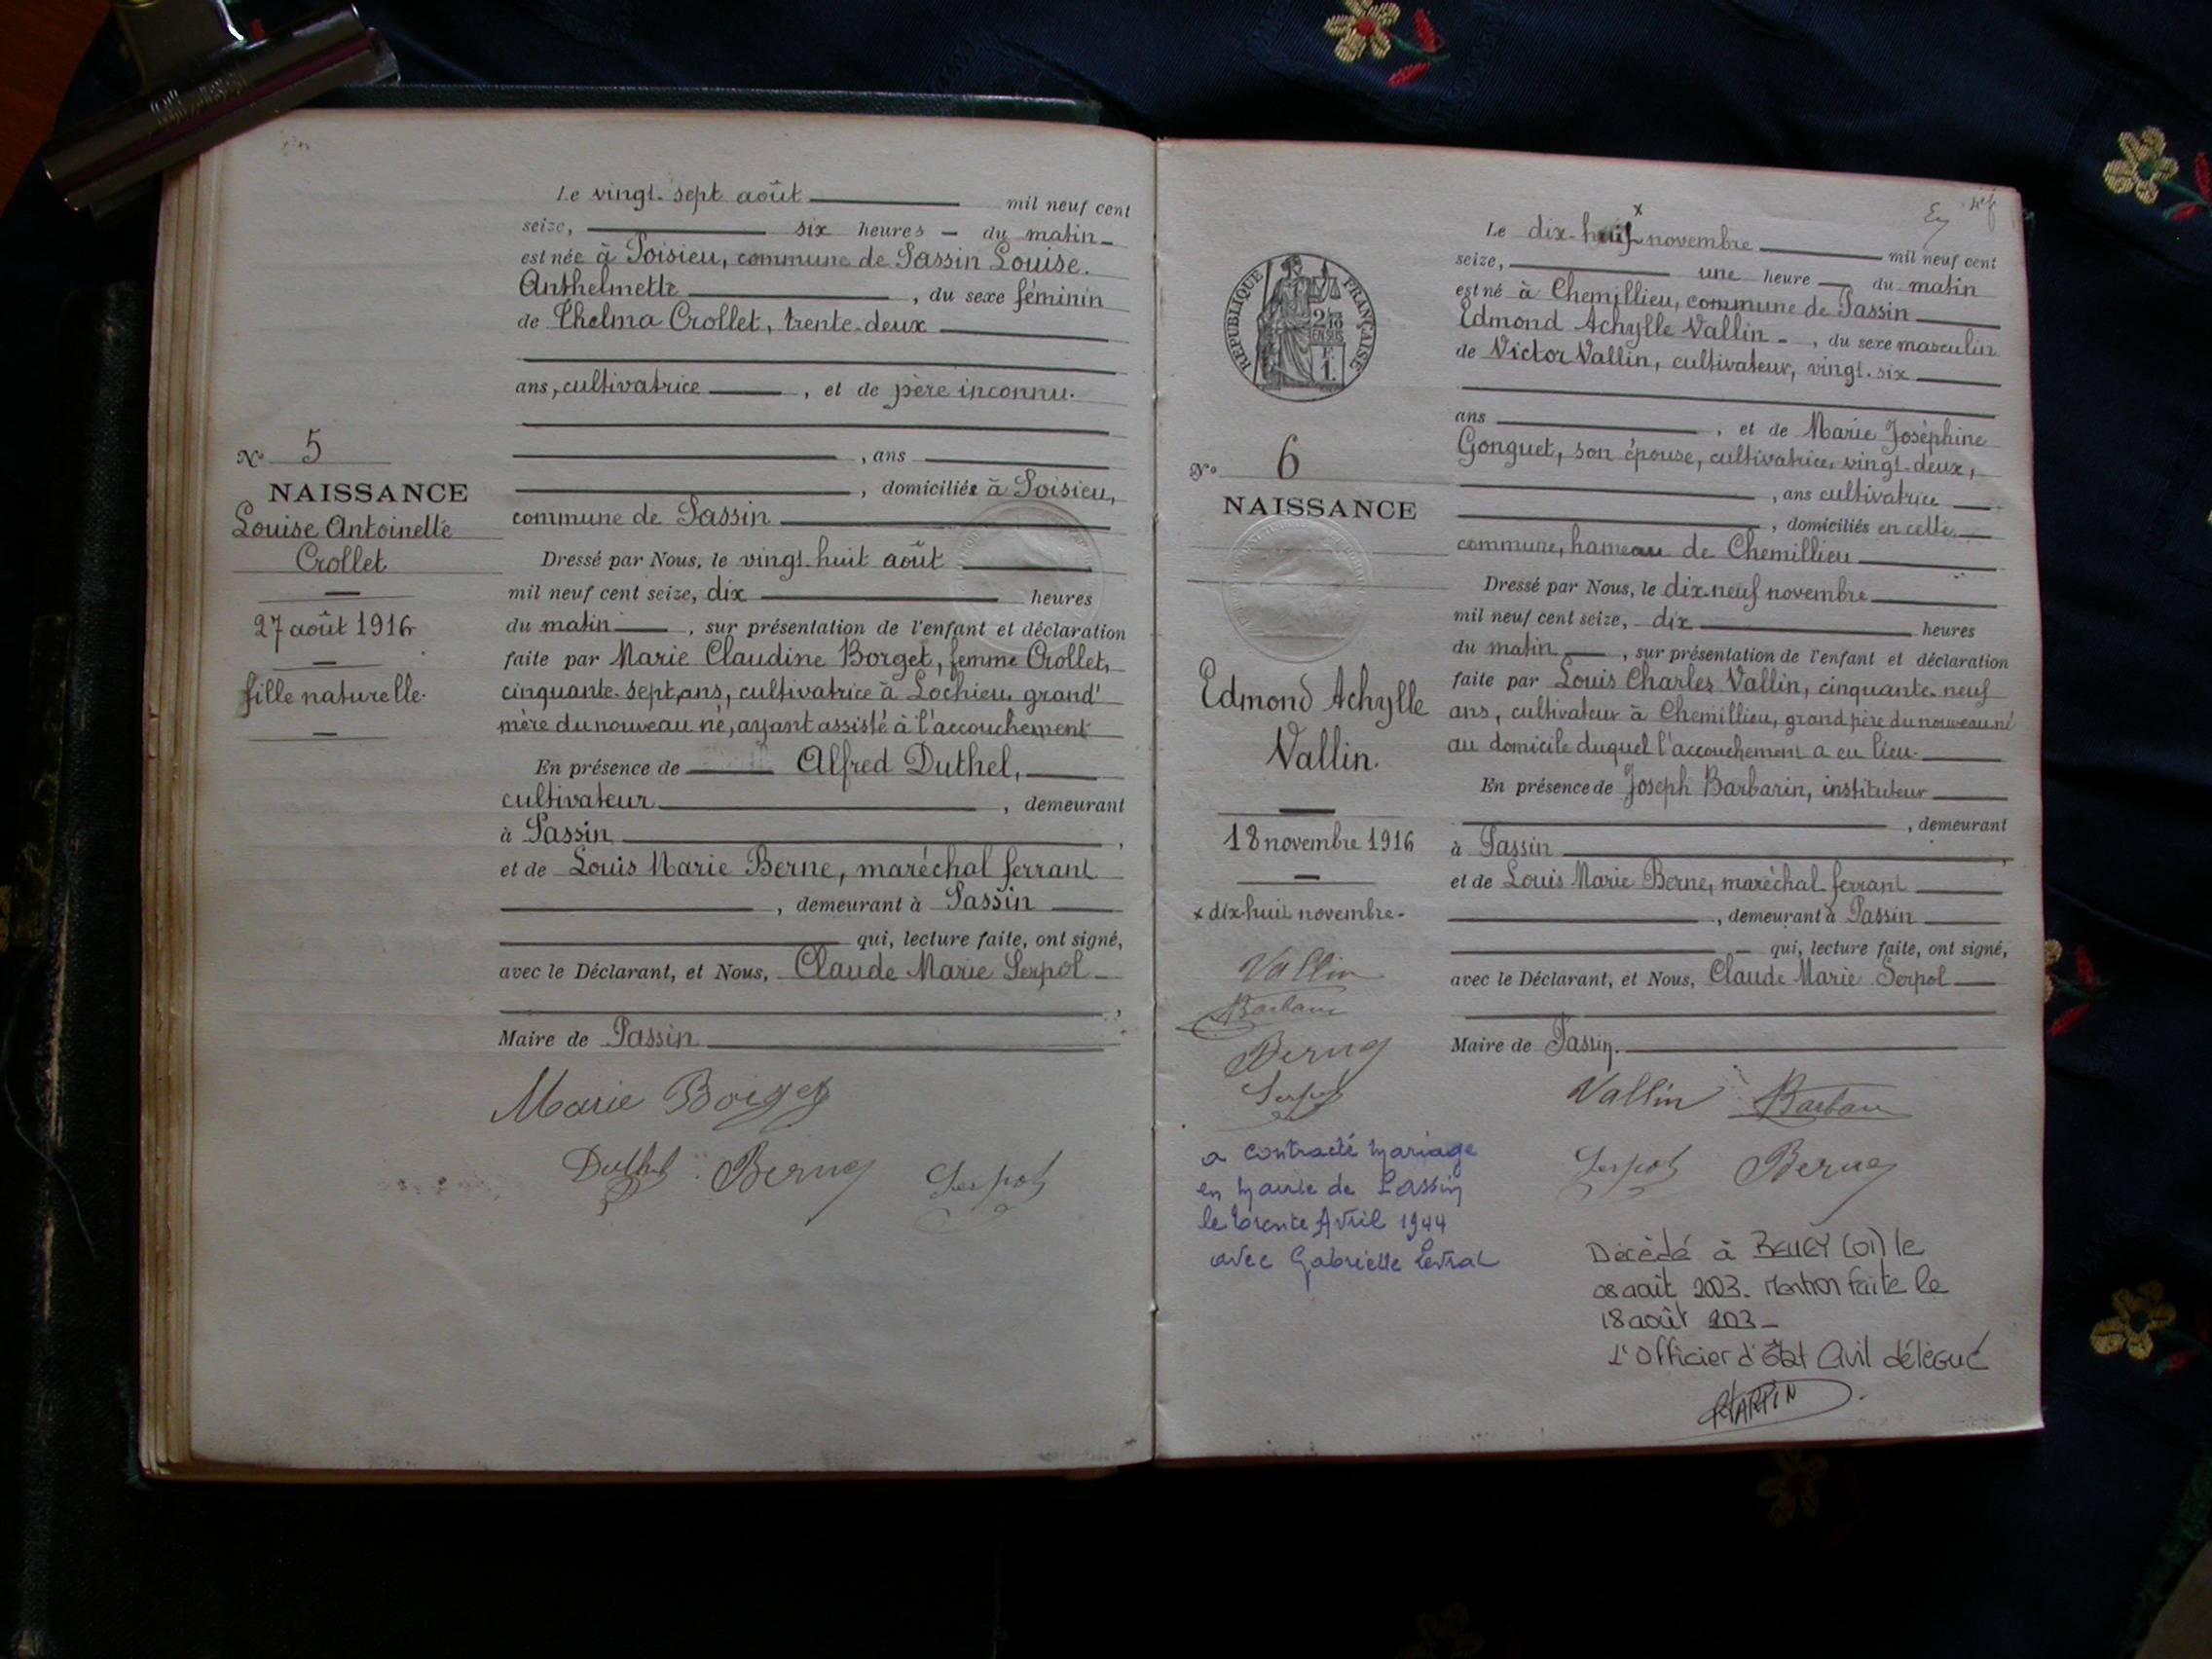 Le vingt-sept août mil neuf cent
seize, six heures du matin
est née à Poisieu, commune de Passin Louise
Anthelmette, du sexe féminin
de Thelma Crollet, trente-deux
ans, cultivatrice, et de père inconnu.
, ans
, domiciliés à Poisieu,
commune de Passin
N° 5
NAISSANCE
Louise Antoinette
Crollet
27 août 1916
fille naturelle
Dressé par Nous, le vingt-huit août
mil neuf cent seize, dix heures
du matin, sur présentation de l'enfant et déclaration
faite par Marie Claudine Borget, femme Crollet,
cinquante-sept ans, cultivatrice à Lochieu, grand'
mère du nouveau né, ayant assisté à l'accouchement
En présence de Alfred Duthel,
cultivateur, demeurant
à Passin,
et de Louis Marie Berne, maréchal ferrant
, demeurant à Passin
qui, lecture faite, ont signé,
avec le Déclarant, et Nous, Claude Marie Serpol
,
Maire de Passin
Marie Borget
Duthel Berne Serpol
Le dix-huit x novembre mil neuf cent
seize, une heure du matin
est né à Chemillieu, commune de Passin
Edmond Achylle Vallin, du sexe masculin
de Victor Vallin, cultivateur, vingt-six
ans, et de Marie Joséphine
Gonguet, son épouse, cultivatrice, vingt-deux,
, ans cultivatrice
, domiciliés en cette
commune, hameau de Chemillieu
REPUBLIQUE FRANÇAISE
2/10
EN SUS
1 F.
N° 6
NAISSANCE
Edmond Achylle
Vallin.
18 novembre 1916
x dix-huit novembre.
Vallin
Barbarin
Berne
Serpol
a contracté mariage
en mairie de Passin
le trente Avril 1944
avec Gabrielle
Dressé par Nous, le dix-neuf novembre
mil neuf cent seize, dix heures
du matin, sur présentation de l'enfant et déclaration
faite par Louis Charles Vallin, cinquante-neuf
ans, cultivateur à Chemillieu, grand père du nouveau né
au domicile duquel l'accouchement a eu lieu.
En présence de Joseph Barbarin, instituteur
, demeurant
à Passin,
et de Louis Marie Berne, maréchal ferrant
, demeurant à Passin
qui, lecture faite, ont signé,
avec le Déclarant, et Nous, Claude Marie Serpol
Maire de Passin.
Vallin Barbarin
Serpol Berne
Décédé à BELLEY (01) le
08 août 2003. Mention faite le
18 août 2003 -
L'Officier d'État Civil délégué